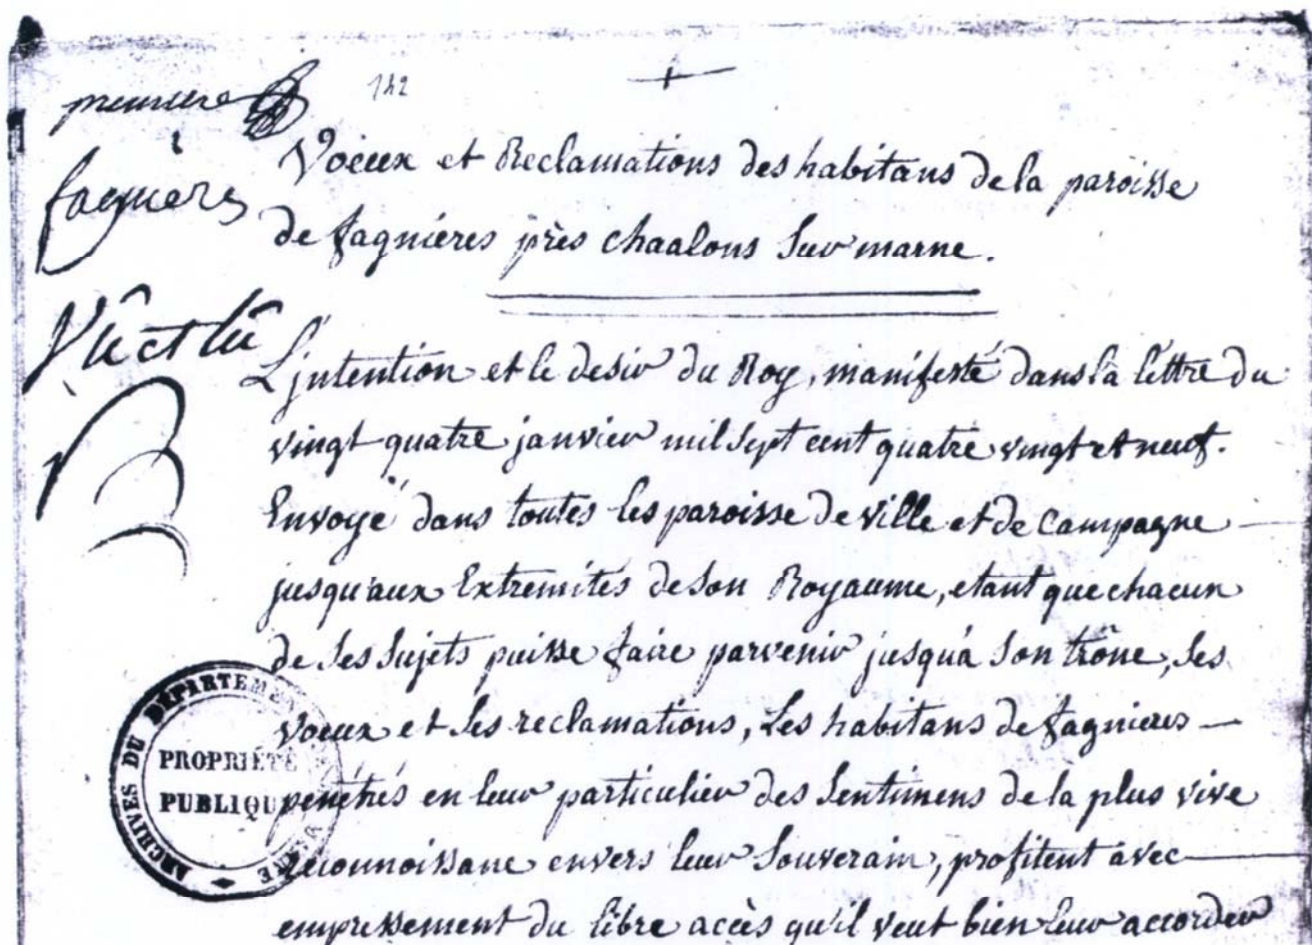 premiere
142
fagnières
Voeux et Reclamations des habitans de la paroisse
de fagniéres près chaalons sur marne.
Vû et lû
L'jntention et le desir du Roy, manifesté dans la lettre du
vingt quatre janvier mil sept cent quatre vingt et neuf.
Envoyé dans toutes les paroisse de ville et de Campagne
jusqu'aux Extremités de son Royaume, etant que chacun
de ses sujets puisse faire parvenir jusqu'à son trône, ses
voeux et ses reclamations, Les habitans de fagnieres
pénétrés en leur particulier des sentimens de la plus vive
reconnoissane envers leur souverain, profitent avec
empressement du libre accès qu'il veut bien leur accorder
ARCHIVES DU DÉPARTEMENT
PROPRIÉTÉ
PUBLIQU